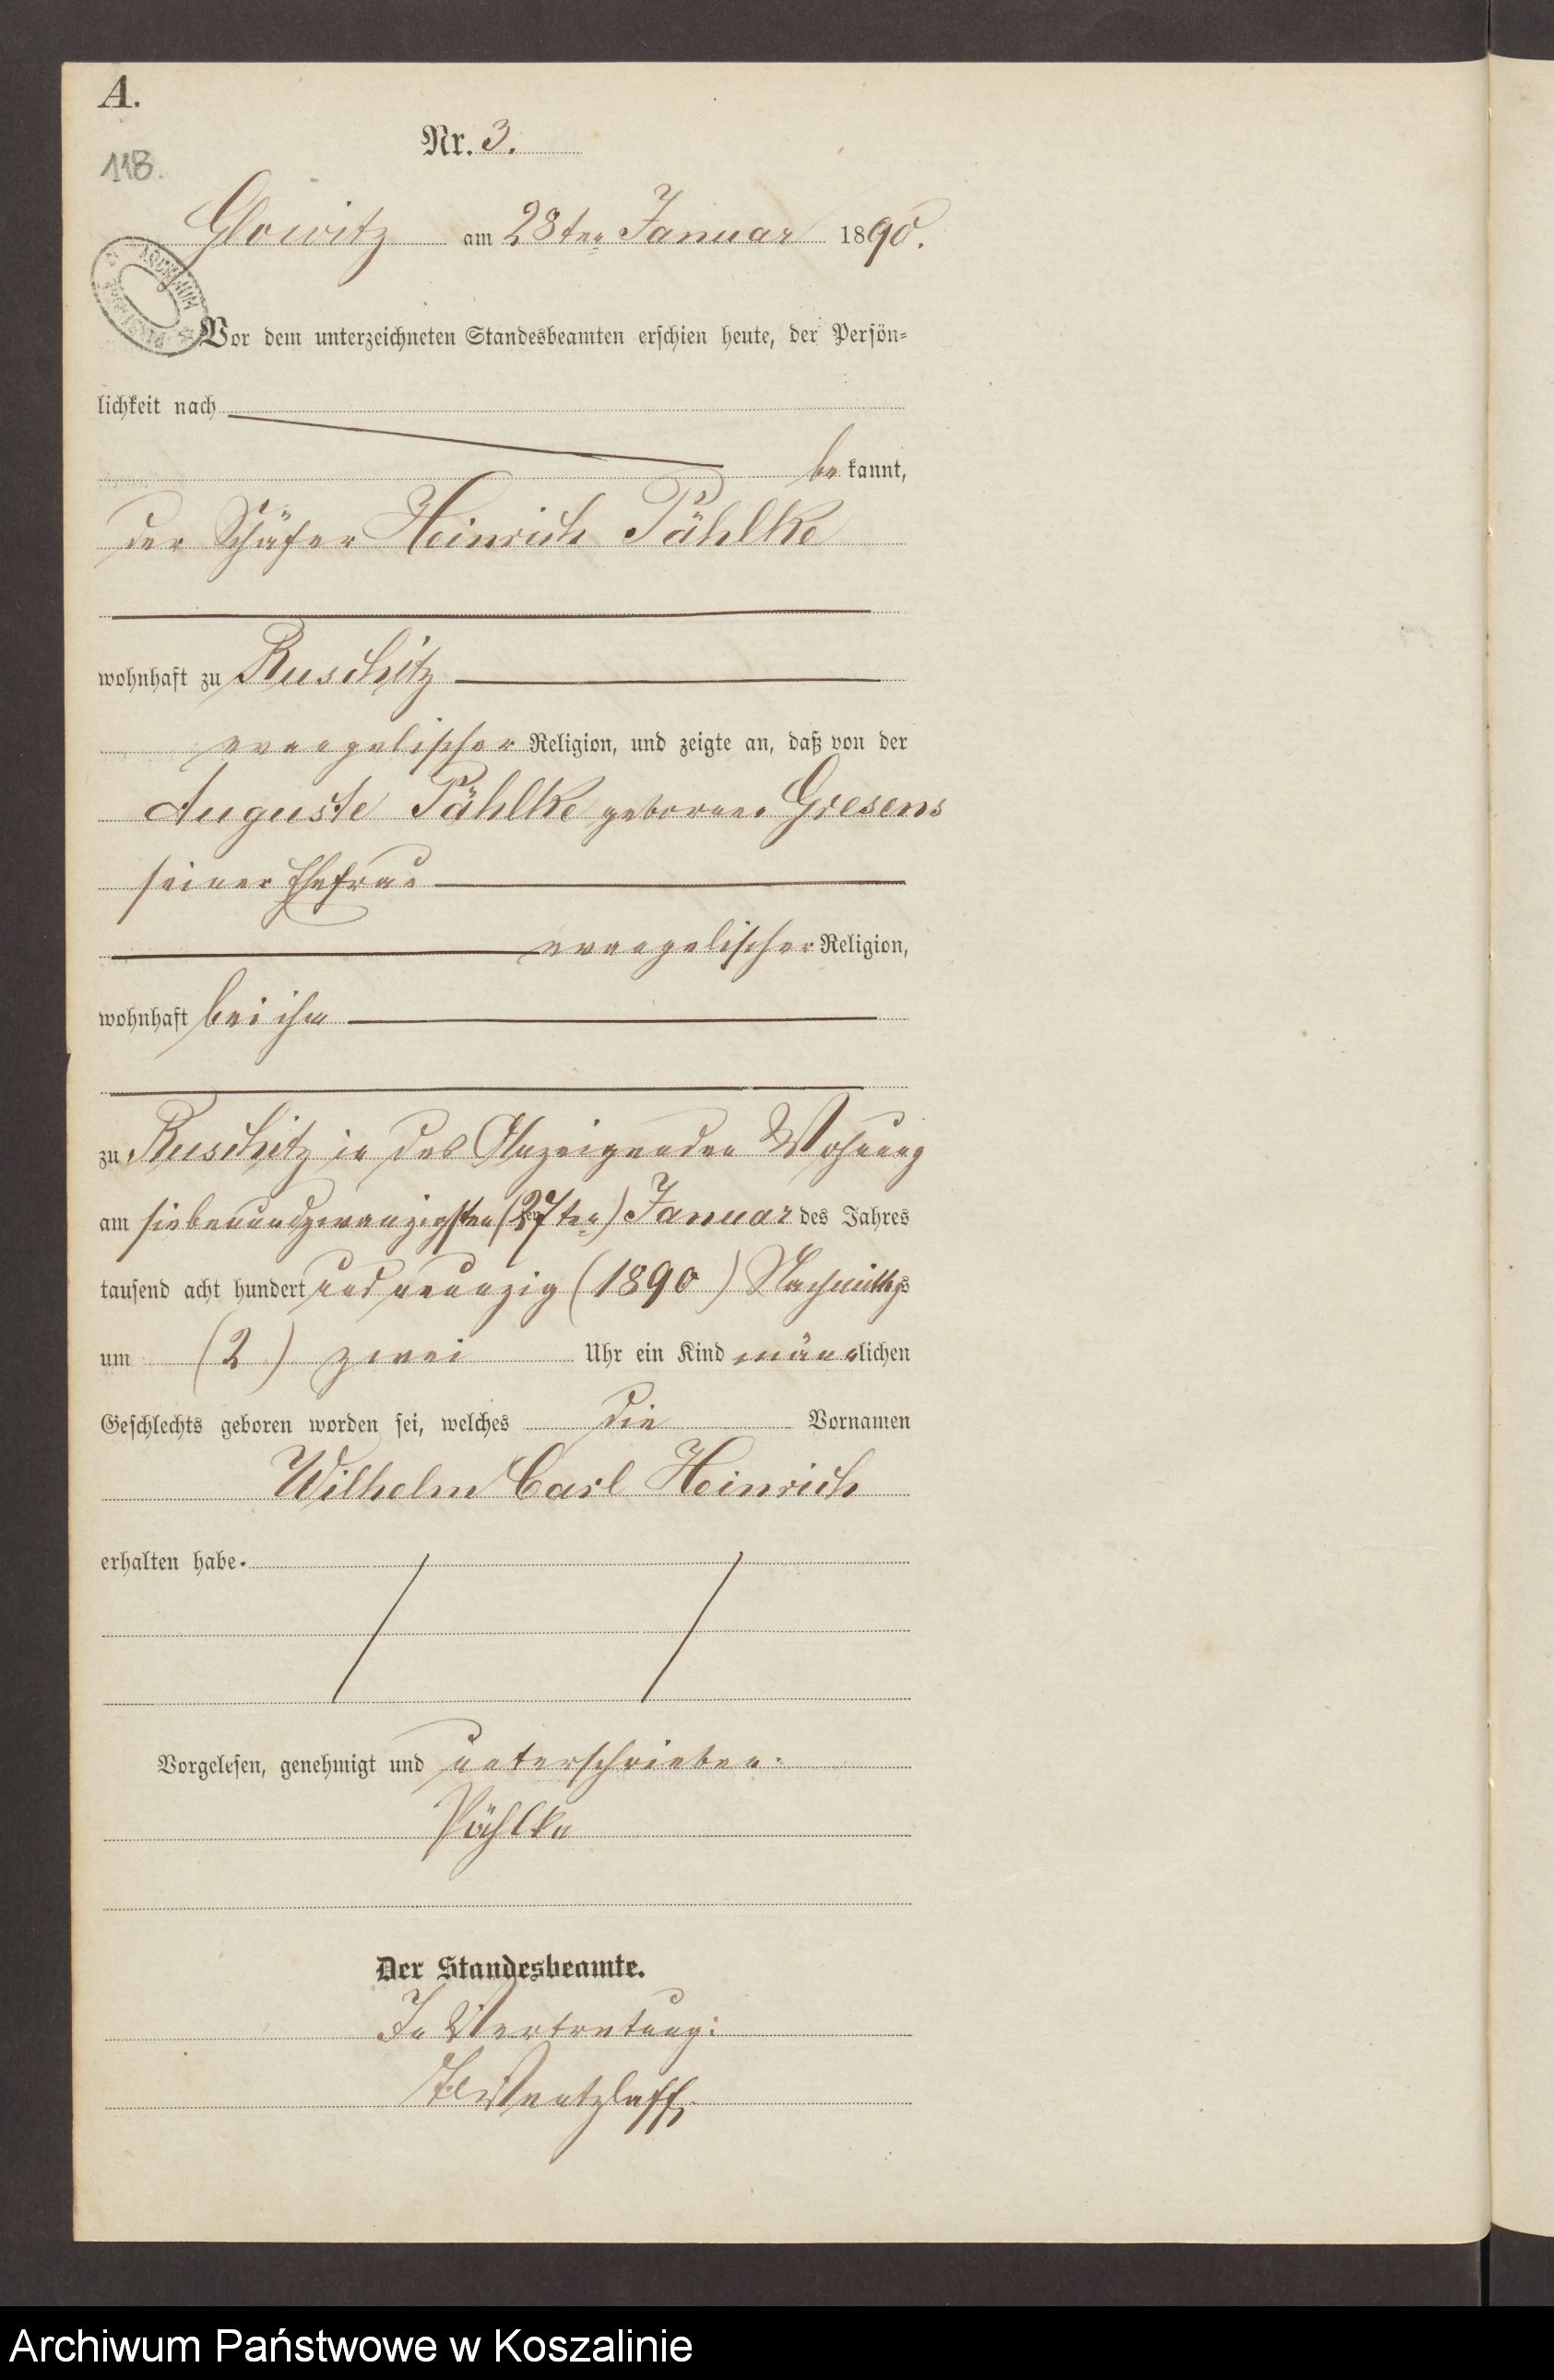 A.
Nr. 3.
118.
Glowitz am 28ten Januar 1890.
Vor dem unterzeichneten Standesbeamten erschien heute, der Persön-
lichkeit nach
be kannt,
der Schäfer Heinrich Pählke
wohnhaft zu Ruschitz
evangelischer Religion, und zeigte an, daß von der
Auguste Pählke geborne Griesens
seiner Ehefrau
evangelischer Religion,
wohnhaft bei ihm
zu Ruschitz in des Anzeigenden Wohnung
am siebenundzwanzigsten (27ten) Januar des Jahres
tausend acht hundert und neunzig (1890) Nachmittags
um (2) zwei Uhr ein Kind männlichen
Geschlechts geboren worden sei, welches die Vornamen
Wilhelm Carl Heinrich
erhalten habe.
Vorgelesen, genehmigt und unterschrieben:
Pählke
Der Standesbeamte.
In Vertretung:
Wentzlaff
Archiwum Państwowe w Koszalinie